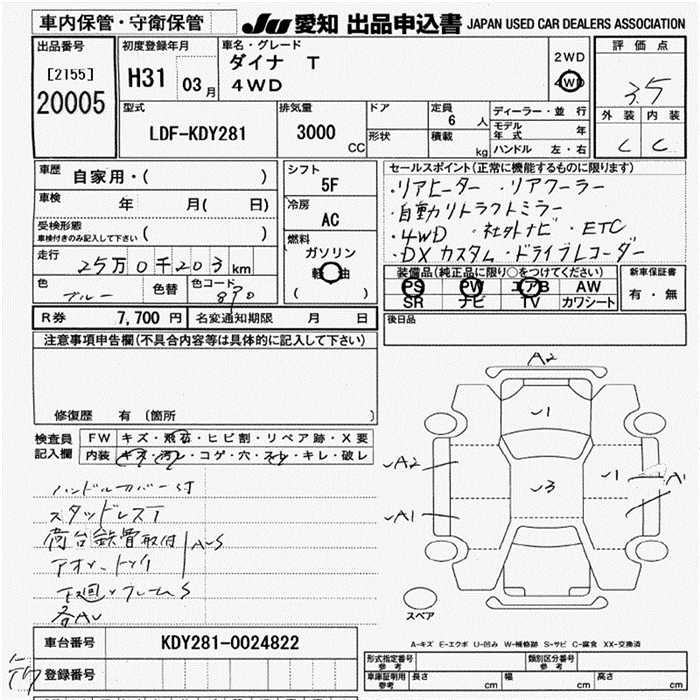 車内保管・守衛保管
JU 愛知 出品申込書 JAPAN USED CAR DEALERS ASSOCIATION
出品番号
[2155]
20005
初度登録年月
H31 03月
車名・グレード
ダイナ T
4WD
2WD
4WD
評価点
3.5
外装 内装
C C
型式
LDF-KDY281
排気量
3000 CC
ドア
形状
定員
6 人
積載
kg
ディーラー・並行
モデル年式 年
ハンドル 左・右
車歴 自家用・( )
車検 年 月( 日)
受検形態
車検付きのみ記入して下さい ( )
走行 25万0千203km
色 ブルー 色替 色コード 8P0
R券 7,700円 名変通知期限 月 日
シフト
5F
冷房
AC
燃料
ガソリン
軽油
( )
セールスポイント(正常に機能するものに限ります)
・リアヒーター ・リアクーラー
・自動リトラクトミラー
・4WD ・社外ナビ ・ETC
・DXカスタム・ドライブレコーダー
装備品(純正品に限り○をつけてください)
PS PW エアB AW
SR ナビ TV カワシート
新車保証書
有・無
後日品
注意事項申告欄(不具合内容等は具体的に記入して下さい)
修復歴 有〔箇所 〕
検査員記入欄
FW キズ・飛石・ヒビ割・リペア跡・X要
内装 キズ・汚レ・コゲ・穴・スレ・キレ・破レ
ハンドルカバー付
スタッドレスT
荷台鉄骨取付
AS
下廻フレームS
各AU
A2
1
A2
A1
3
1
A1
スペア
A-キズ E-エクボ U-凹み W-補修跡 S-サビ C-腐食 XX-交換済
車台番号 KDY281-0024822
登録番号
形式指定番号 参考
類別区分番号 参考
車庫証明用参考 長さ cm 幅 cm 高さ cm